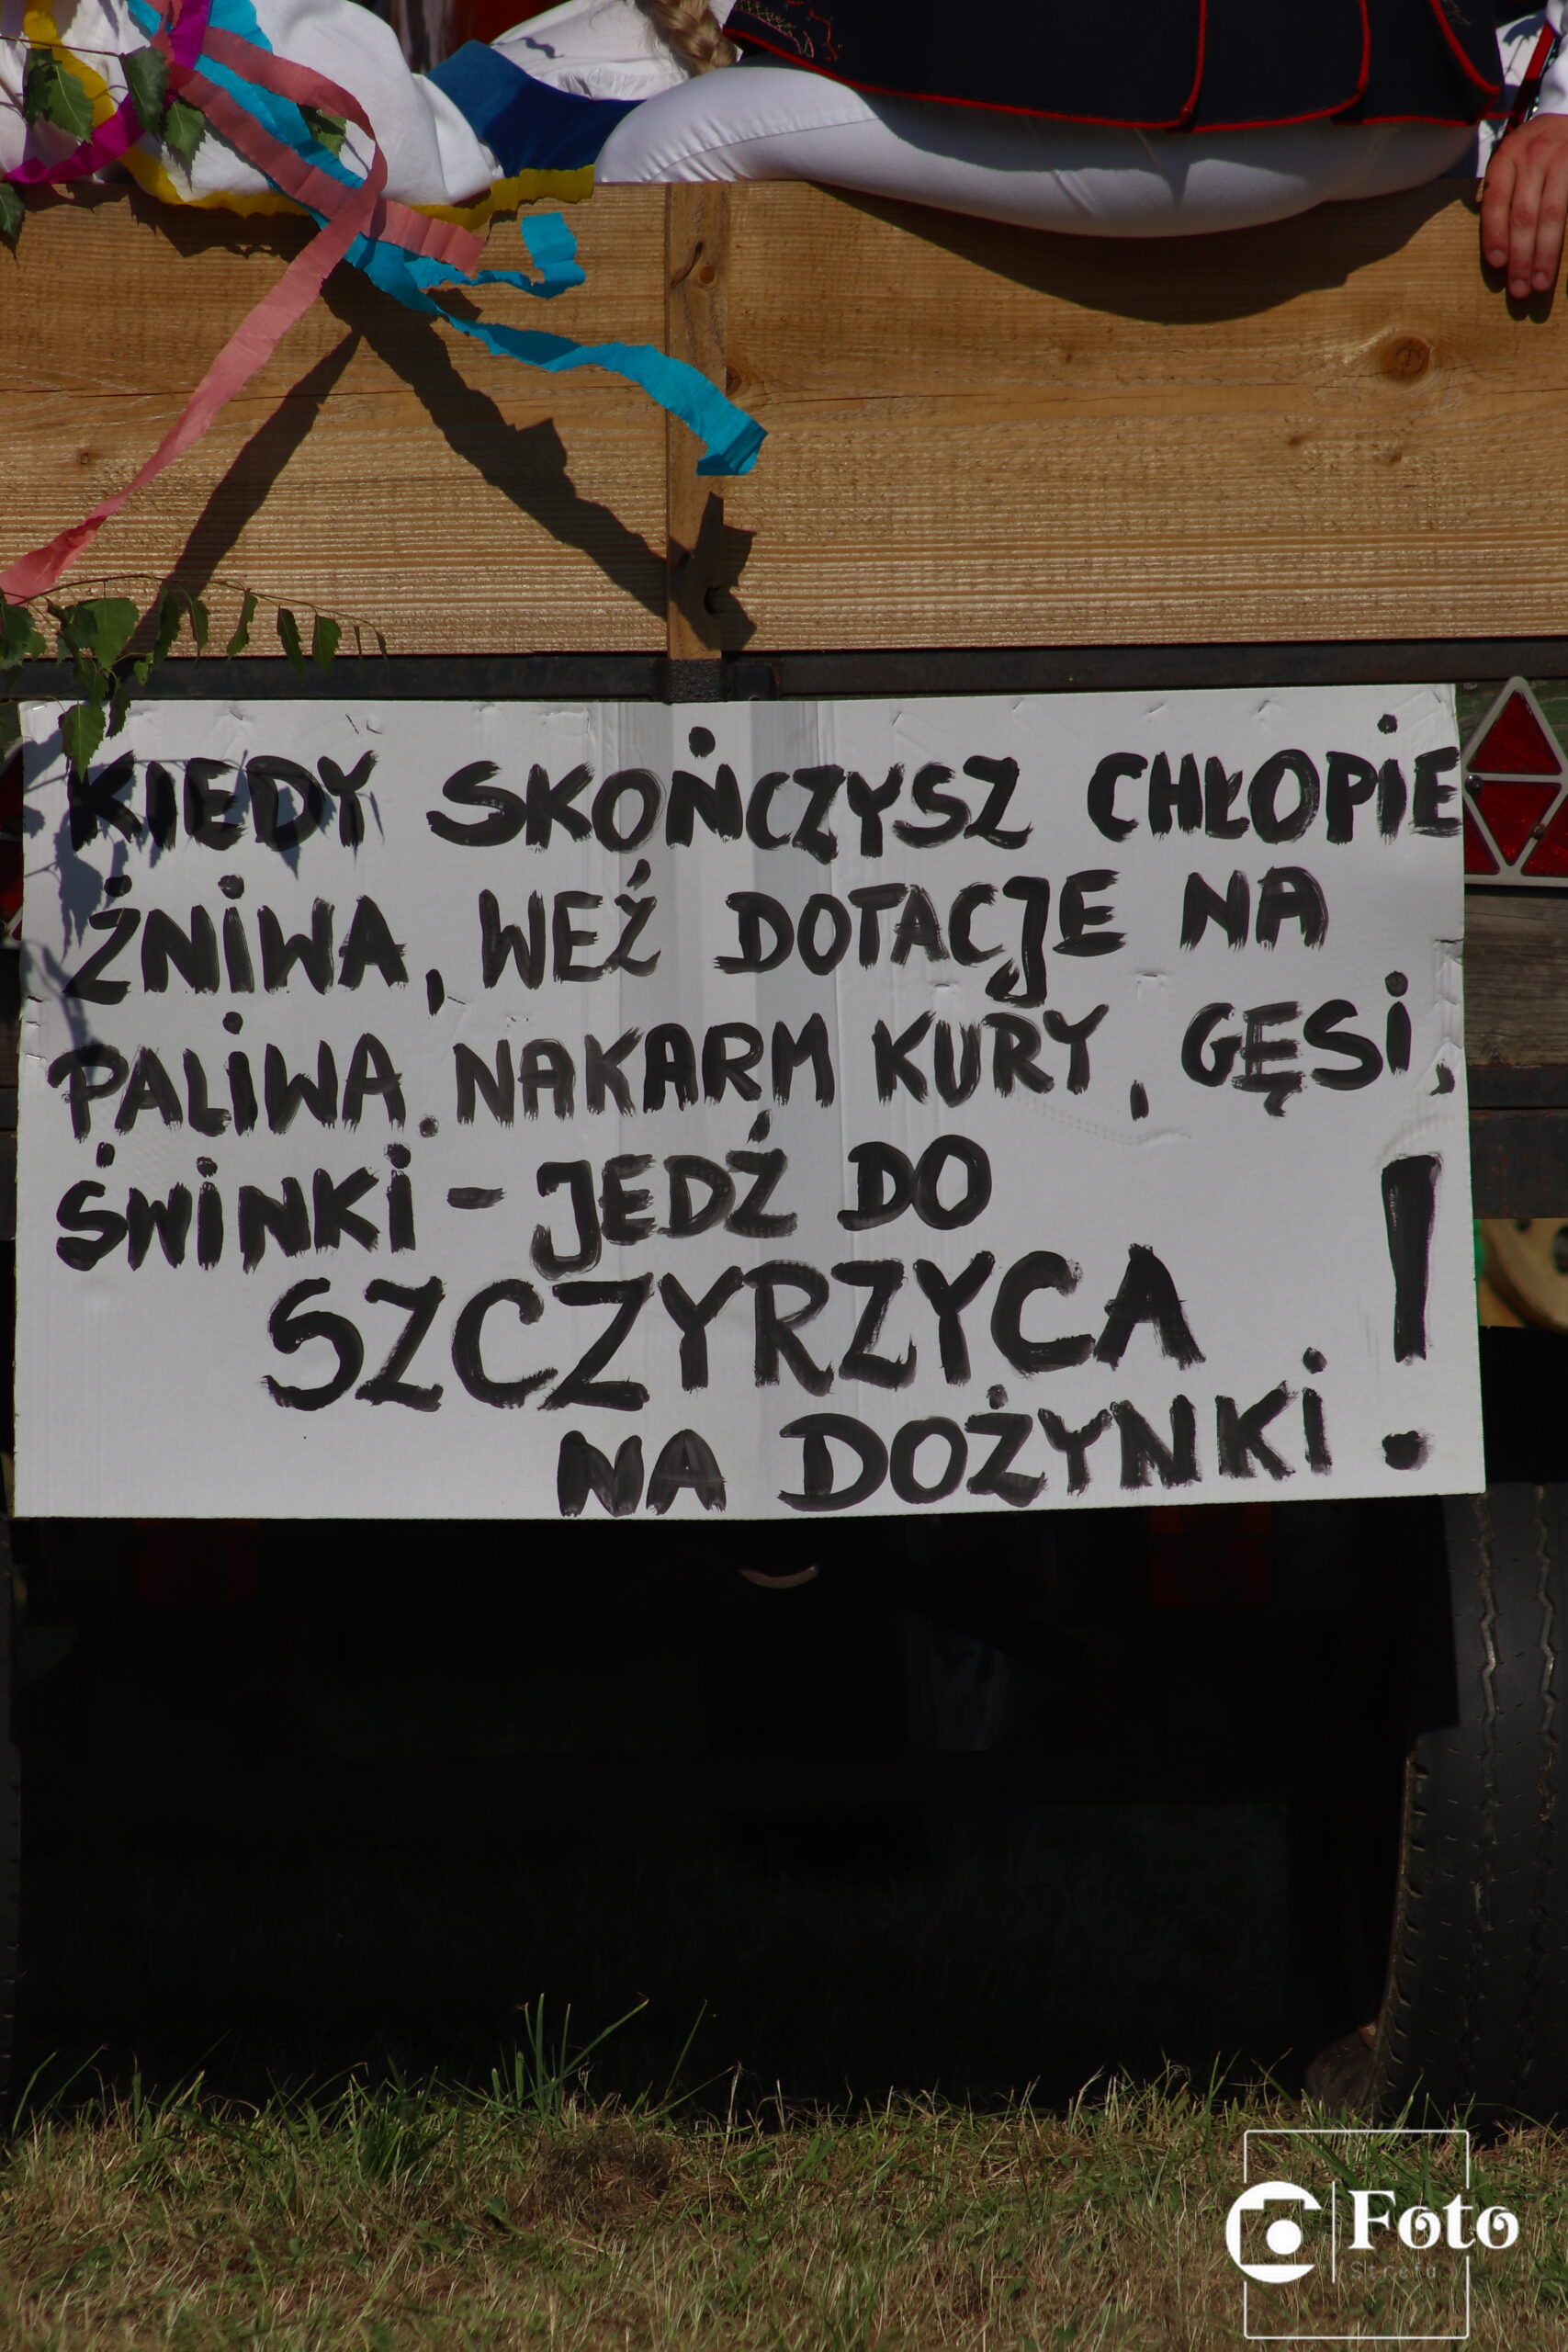 KIEDY SKOŃCZYSZ CHŁOPIE
ŻNIWA, WEŹ DOTACJE NA
PALIWA. NAKARM KURY, GĘSI,
ŚWINKI - JEDŹ DO
SZCZYRZYCA
NA DOŻYNKI!
Foto